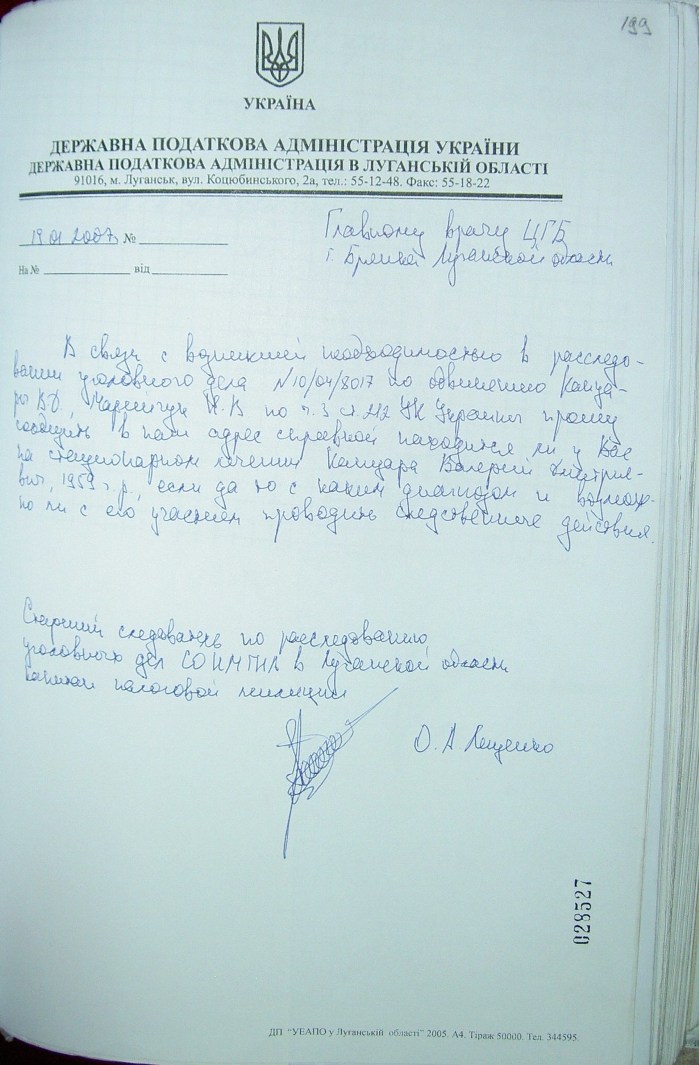 199
УКРАЇНА
ДЕРЖАВНА ПОДАТКОВА АДМІНІСТРАЦІЯ УКРАЇНИ
ДЕРЖАВНА ПОДАТКОВА АДМІНІСТРАЦІЯ В ЛУГАНСЬКІЙ ОБЛАСТІ
91016, м. Луганськ, вул. Коцюбинського, 2а, тел.: 55-12-48. Факс: 55-18-22
19.01 2007 №
На № від
Главному врачу ЦГБ
г. Брянка Луганской области
В связи с возникшей необходимостью в расследо-
вании уголовного дела №10/04/8017 по обвинению
В.Д., Н.В по ч.3 ст.212 УК Украины прошу
сообщить в наш адрес справкой находится ли у Вас
на стационарном лечении Валерий Дмитрие-
вич, 1959 г.р., если да то с каким диагнозом и возмож-
но ли с его участием проводить следственные действия.
Старший следователь по расследованию
уголовного дел СО НМ ГНА в Луганской области
капитан налоговой милиции
О.А Лещенко
028527
ДП "УЕАПО у Луганській області" 2005. А4. Тираж 50000. Тел. 344595.